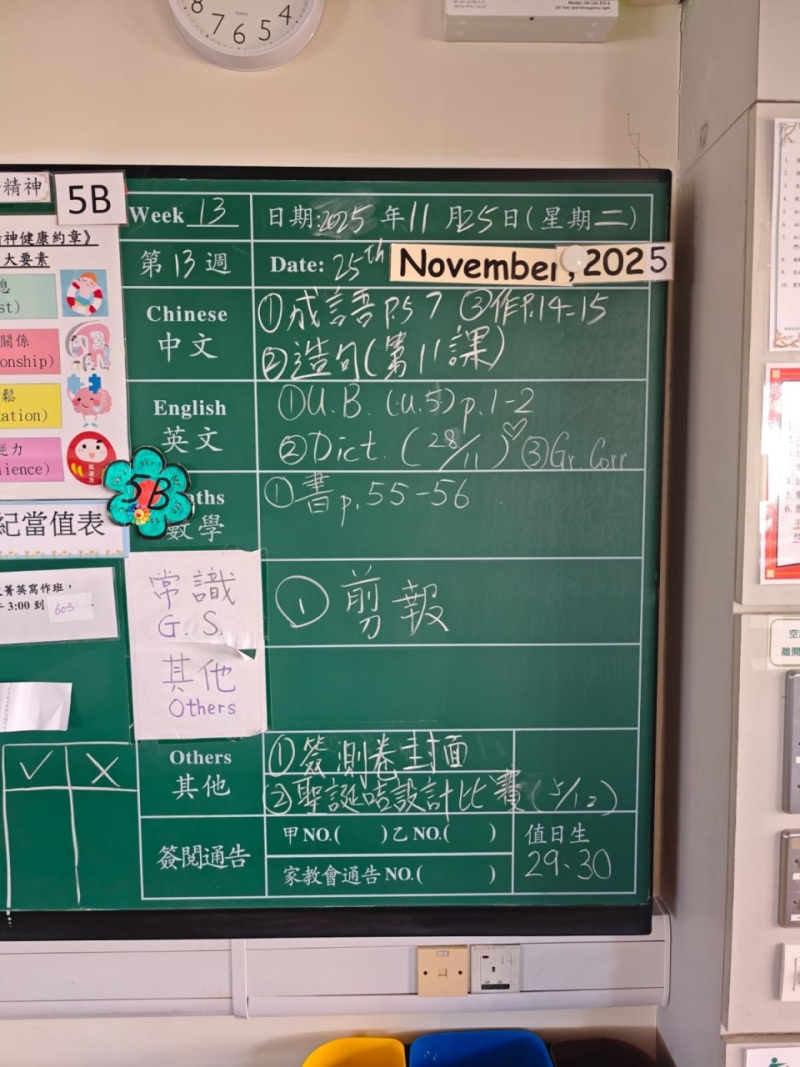 8 7 6 5 4
精神
5B
神健康約章》
大要素
關係
onship)
鬆
ation)
逆力
ience)
5B
紀當值表
菁英寫作班，
3:00 到 603
✓ ✗
Week 13
日期:2025 年 11 月 25 日(星期二)
第 13 週
Date: 25th November, 2025
Chinese
中文
①成語 P.57 ③作P.14-15
②造句(第11課)
English
英文
①U.B. (U.5) p.1-2
②Dict. (28/11)♡ ③Gr Corr
ths
數學
①書 p.55-56
常識
G.S.
① 剪報
其他
Others
Others
其他
①簽測卷封面
②聖誕咭設計比賽(5/12)
簽閱通告
甲 NO.( )乙 NO.( )
家教會通告 NO.( )
值日生
29、30